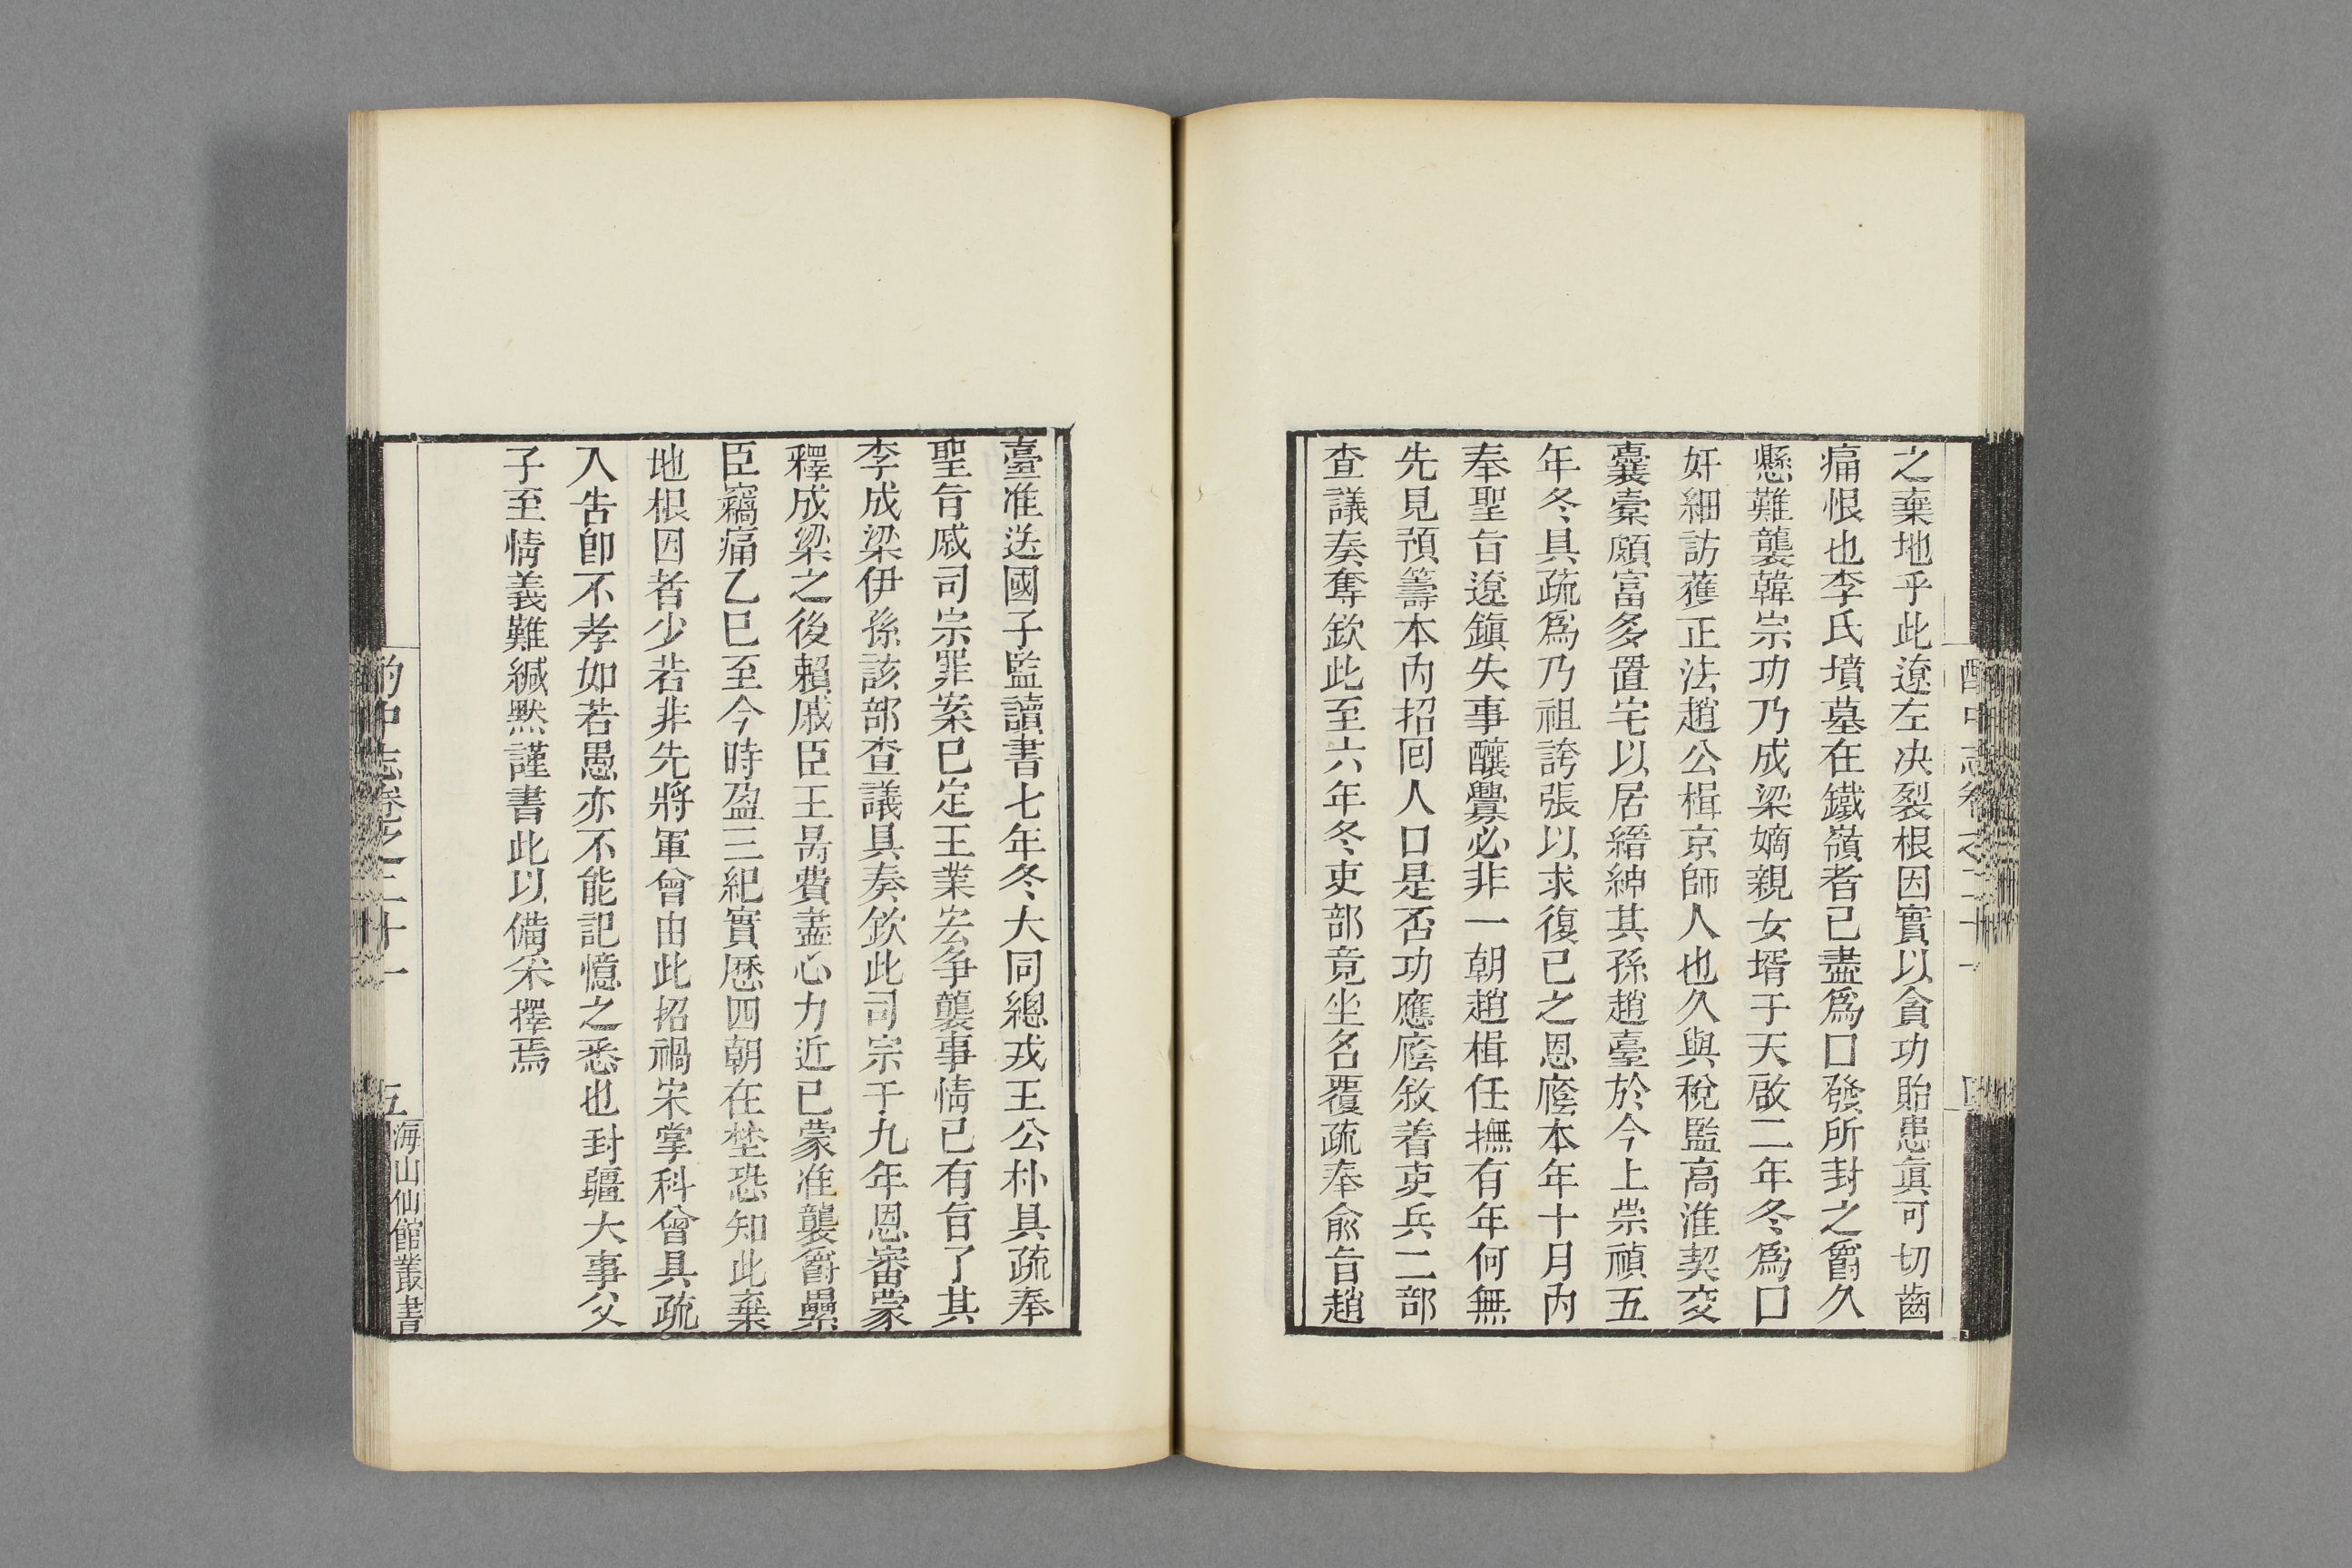 之棄地乎此遼左决裂根因實以貪功貽患眞可切齒
痛恨也李氏墳墓在鐵嶺者已盡爲口發所封之爵久
懸難襲韓宗功乃成梁嫡親女壻于天啟二年冬爲口
奸細訪獲正法趙公楫京師人也久與稅監高淮契交
囊橐頗富多置宅以居縉紳其孫趙臺於今上崇禎五
年冬具疏爲乃祖誇張以求復已之恩廕本年十月內
奉聖旨遼鎮失事釀釁必非一朝趙楫任撫有年何無
先見預籌本內招回人口是否功應廕敘着吏兵二部
查議奏奪欽此至六年冬吏部竟坐名覆疏奉兪旨趙
臺准送國子監讀書七年冬大同總戎王公朴具疏奉
聖旨戚司宗罪案已定王業宏争襲事情已有旨了其
李成梁伊孫該部查議具奏欽此司宗于九年恩審蒙
釋成梁之後賴戚臣王昺費盡心力近已蒙准襲爵纍
臣竊痛乙巳至今時盈三紀實歷四朝在埜恐知此棄
地根因者少若非先將軍曾由此招禍宋掌科曾具疏
入告卽不孝如若愚亦不能記憶之悉也封疆大事父
子至情義難緘默謹書此以備采擇焉
酌中志卷之二十一
五
海山仙館叢書